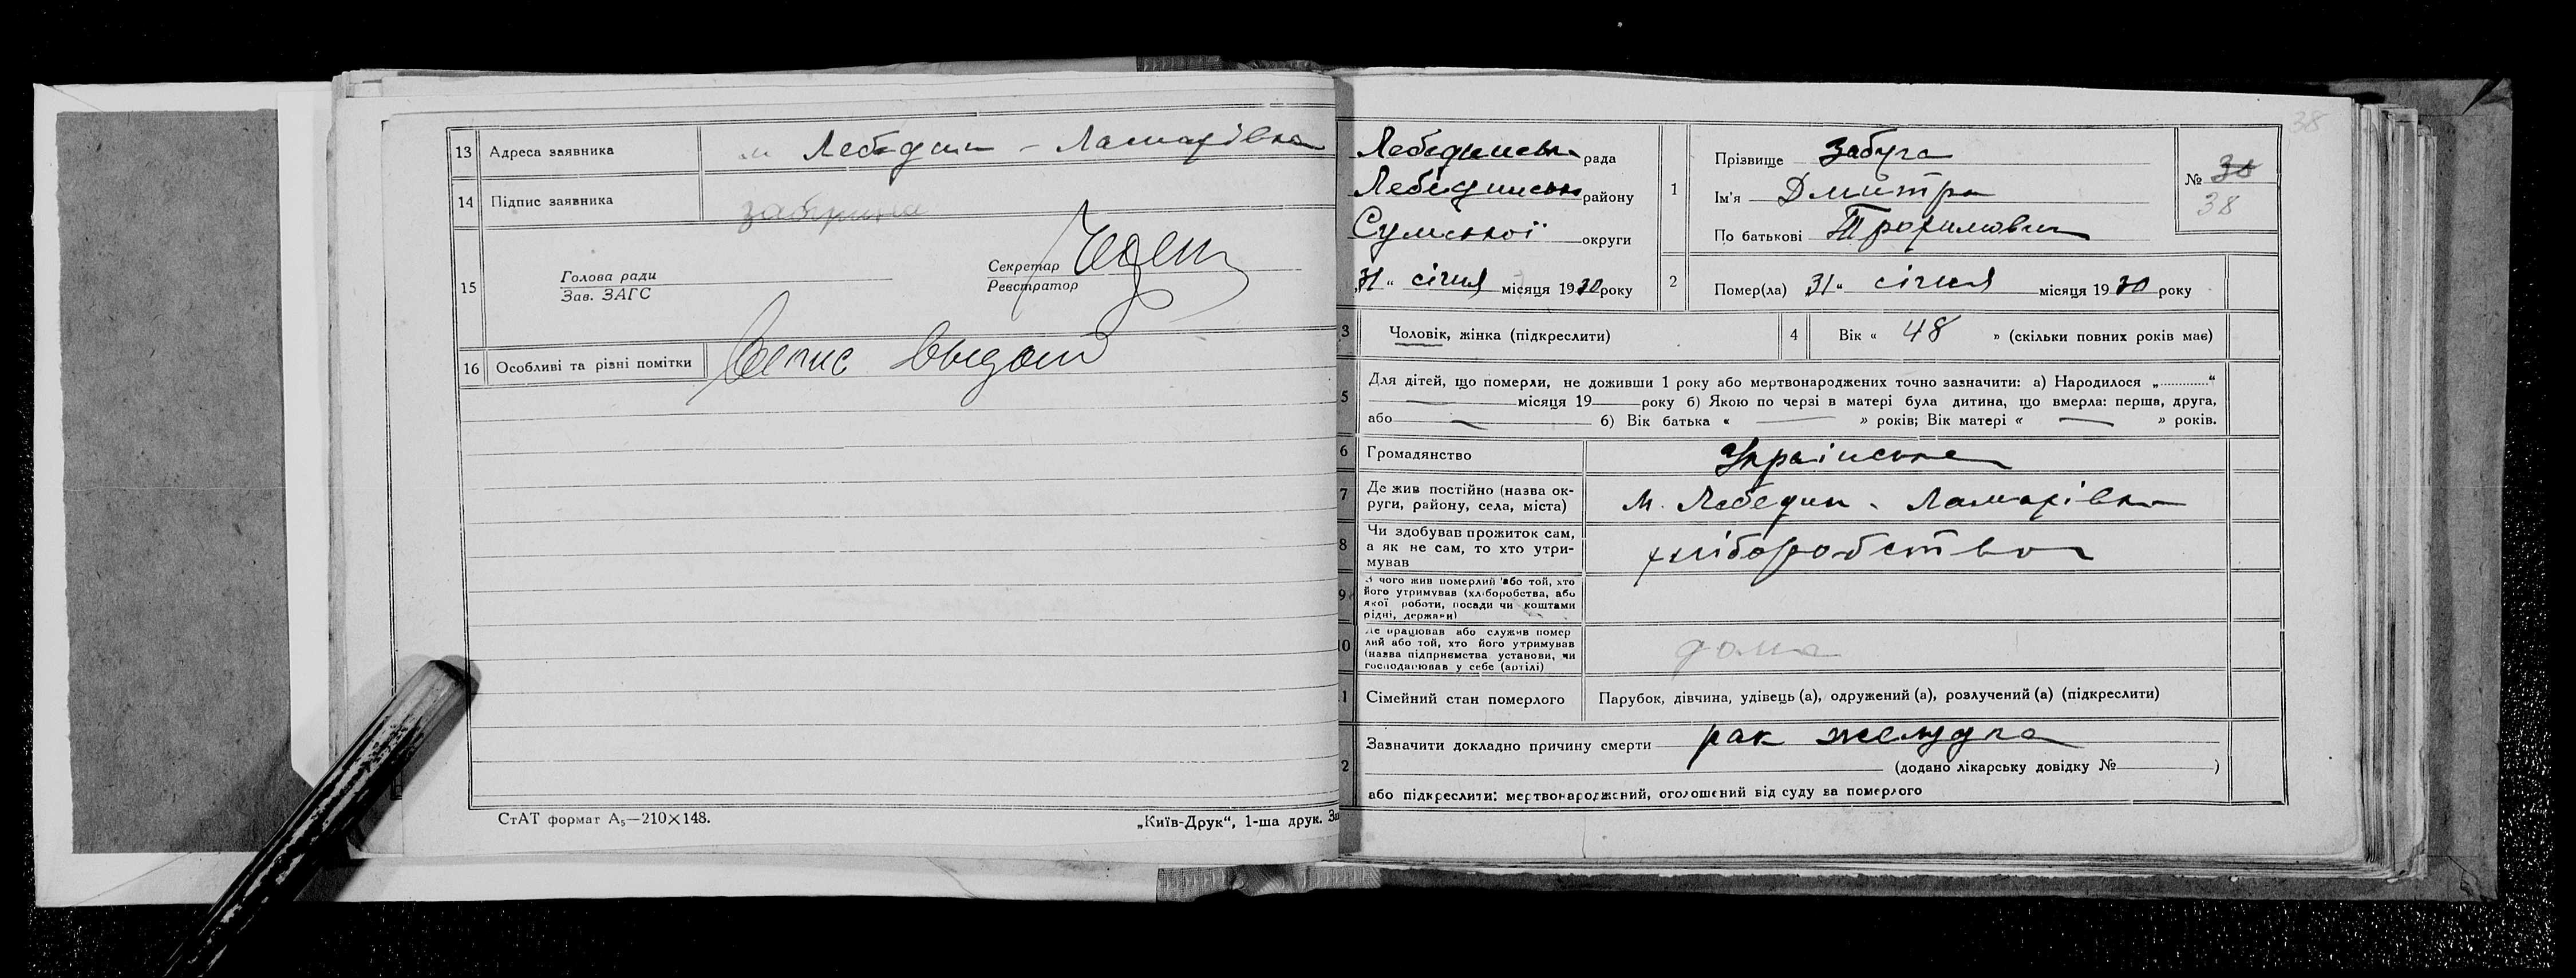 13 Адреса заявника м Лебедин - Ламарівка
14 Підпис заявника
15 Голова ради
Зав. ЗАГС
Секретар
Реєстратор
16 Особливі та різні помітки
СтАТ формат А₅—210×148.
„Київ-Друк“, 1-ша друк. За
38
Лебединська рада
Лебединськ району
Сумської округи
„31“ січня місяця 1930 року
1 Прізвище Забуга
Ім'я Дмитро
По батькові Трохимович
№ 38
38
2 Помер(ла) 31“ січня місяця 1930 року
3 Чоловік, жінка (підкреслити)
4 Вік « 48 » (скільки повних років має)
5 Для дітей, що померли, не доживши 1 року або мертвонароджених точно зазначити: а) Народилося „ “
місяця 19 року б) Якою по черзі в матері була дитина, що вмерла: перша, друга,
або б) Вік батька « » років; Вік матері « » років.
6 Громадянство Українське
7 Де жив постійно (назва ок-
руги, району, села, міста) м. Лебедин - Ламарівка
8 Чи здобував прожиток сам,
а як не сам, то хто утри-
мував хліборобство
9 З чого жив померлий або той, хто
його утримував (хліборобства, або
якої роботи, посади чи коштами
рідні, держави)
10 Де працював або служив помер
лий або той, хто його утримував
(назва підприємства установи, чи
господарював у себе (артілі) дома
1 Сімейний стан померлого Парубок, дівчина, удівець (а), одружений (а), розлучений (а) (підкреслити)
2 Зазначити докладно причину смерти рак желудка
(додано лікарську довідку № )
або підкреслити: мертвонароджений, оголошений від суду за померлого